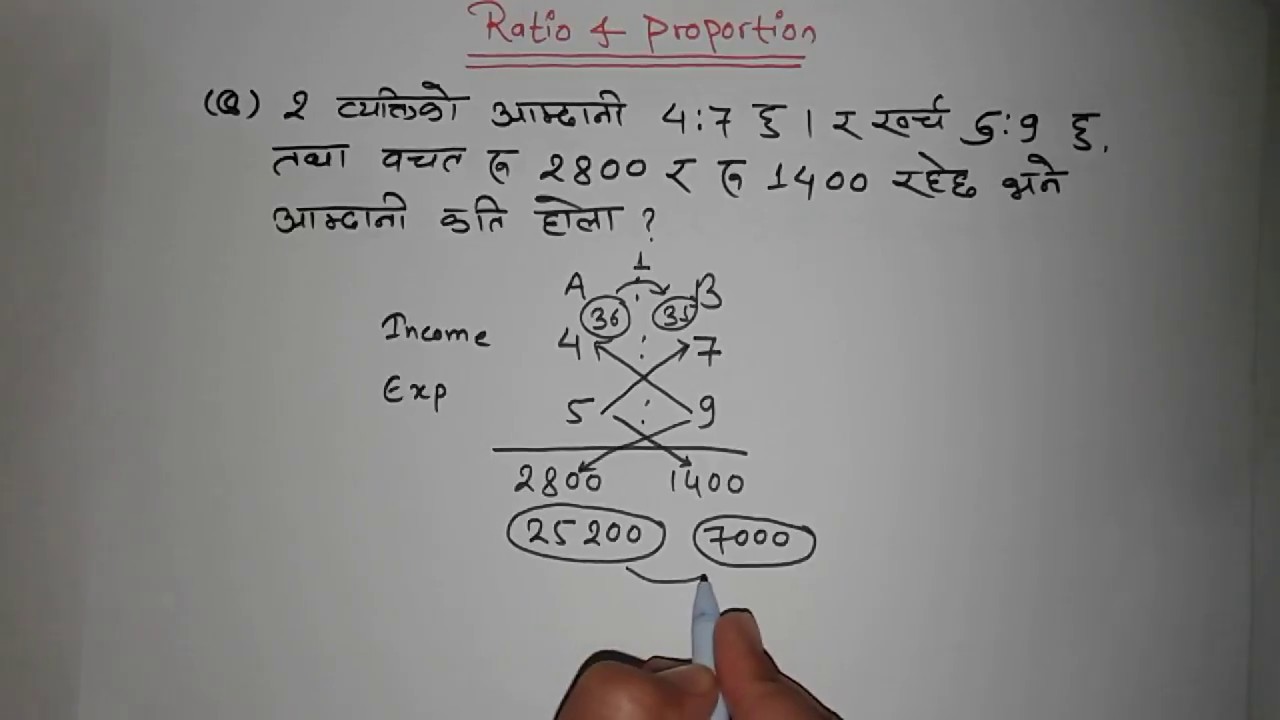 Ratio & Proportion
(Q) २ व्यक्तिको आम्दानी 4:7 छ । र खर्च 5:9 छ,
तथा वचत रू 2800 र रू 1400 रहेछ भने
आम्दानी कति होला ?
1
A : B
36 35
Income 4 : 7
Exp 5 : 9
2800 1400
25200 7000